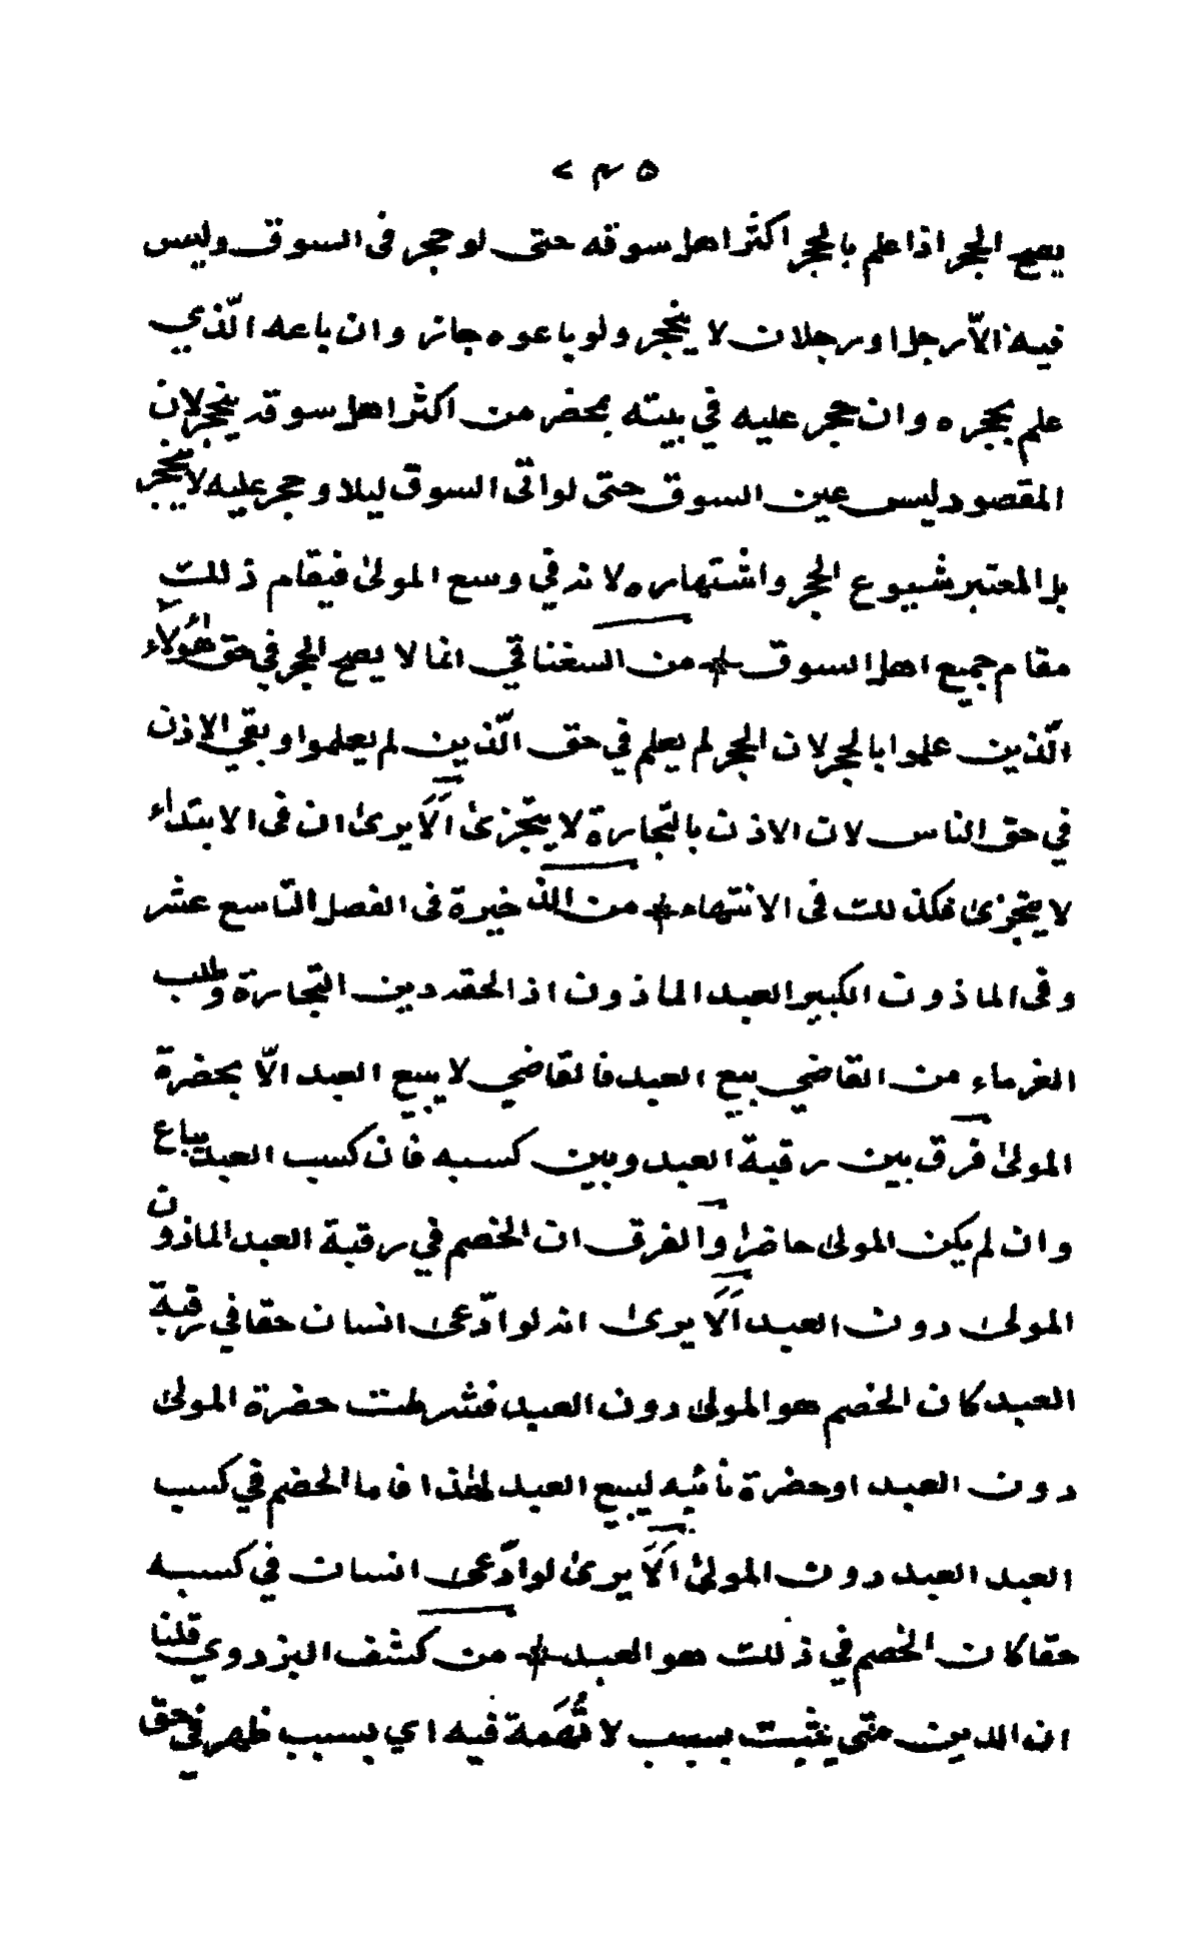 ۲۴۵
يصح الحجر اذا علم بالحجر اكثر اهل سوقه حتى لو حجر فى السوق وليس
فيه الّا رجل او رجلان لا ينحجر ولو باعوه جاز وان باعه الّذي
علم بحجره وان حجر عليه في بيته بمحضر من اكثر اهل سوقه ينحجر لان
المقصود ليس عين السوق حتى لو اتى السوق ليلا وحجر عليه لا ينحجر
بل المعتبر شيوع الحجر واشتهاره لانه في وسع المولى فيقام ذلك
مقام جميع اهل السوق # من السغناقي انما لا يصح الحجر في حق هٰؤلاء
الّذين علموا بالحجر لان الحجر لم يعلم في حق الّذين لم يعلموا وبقي الاذن
في حق الناس لان الاذن بالتّجارة لا يتجزىٰ اَلَا يرىٰ ان فى الابتداء
لا يتجزىٰ فكذلك فى الانتهاء # من الذخيرة فى الفصل التّاسع عشر
وفى الماذون الكبير العبد الماذون اذا لحقه دين التّجارة وطلب
الغرماء من القاضي بيع العبد فالقاضي لا يبيع العبد الّا بحضرة
المولىٰ فرق بين رقبة العبد وبين كسبه فان كسب العبد يباع
وان لم يكن المولىٰ حاضرا والفرق ان الخصم في رقبة العبد الماذون
المولىٰ دون العبد اَلَا يرىٰ انه لو ادّعىٰ انسان حقا في رقبة
العبد كان الخصم هو المولىٰ دون العبد فشرطت حضرة المولىٰ
دون العبد او حضرة نائبه ليبيع العبد لهٰذا فاما الخصم في كسب
العبد العبد دون المولىٰ اَلَا يرىٰ لو ادّعىٰ انسان في كسبه
حقا كان الخصم في ذلك هو العبد # من كشف البزدوي قلنا
ان الدين متى يثبت بسبب لا تُهَمة فيه اي بسبب ظهر في حق